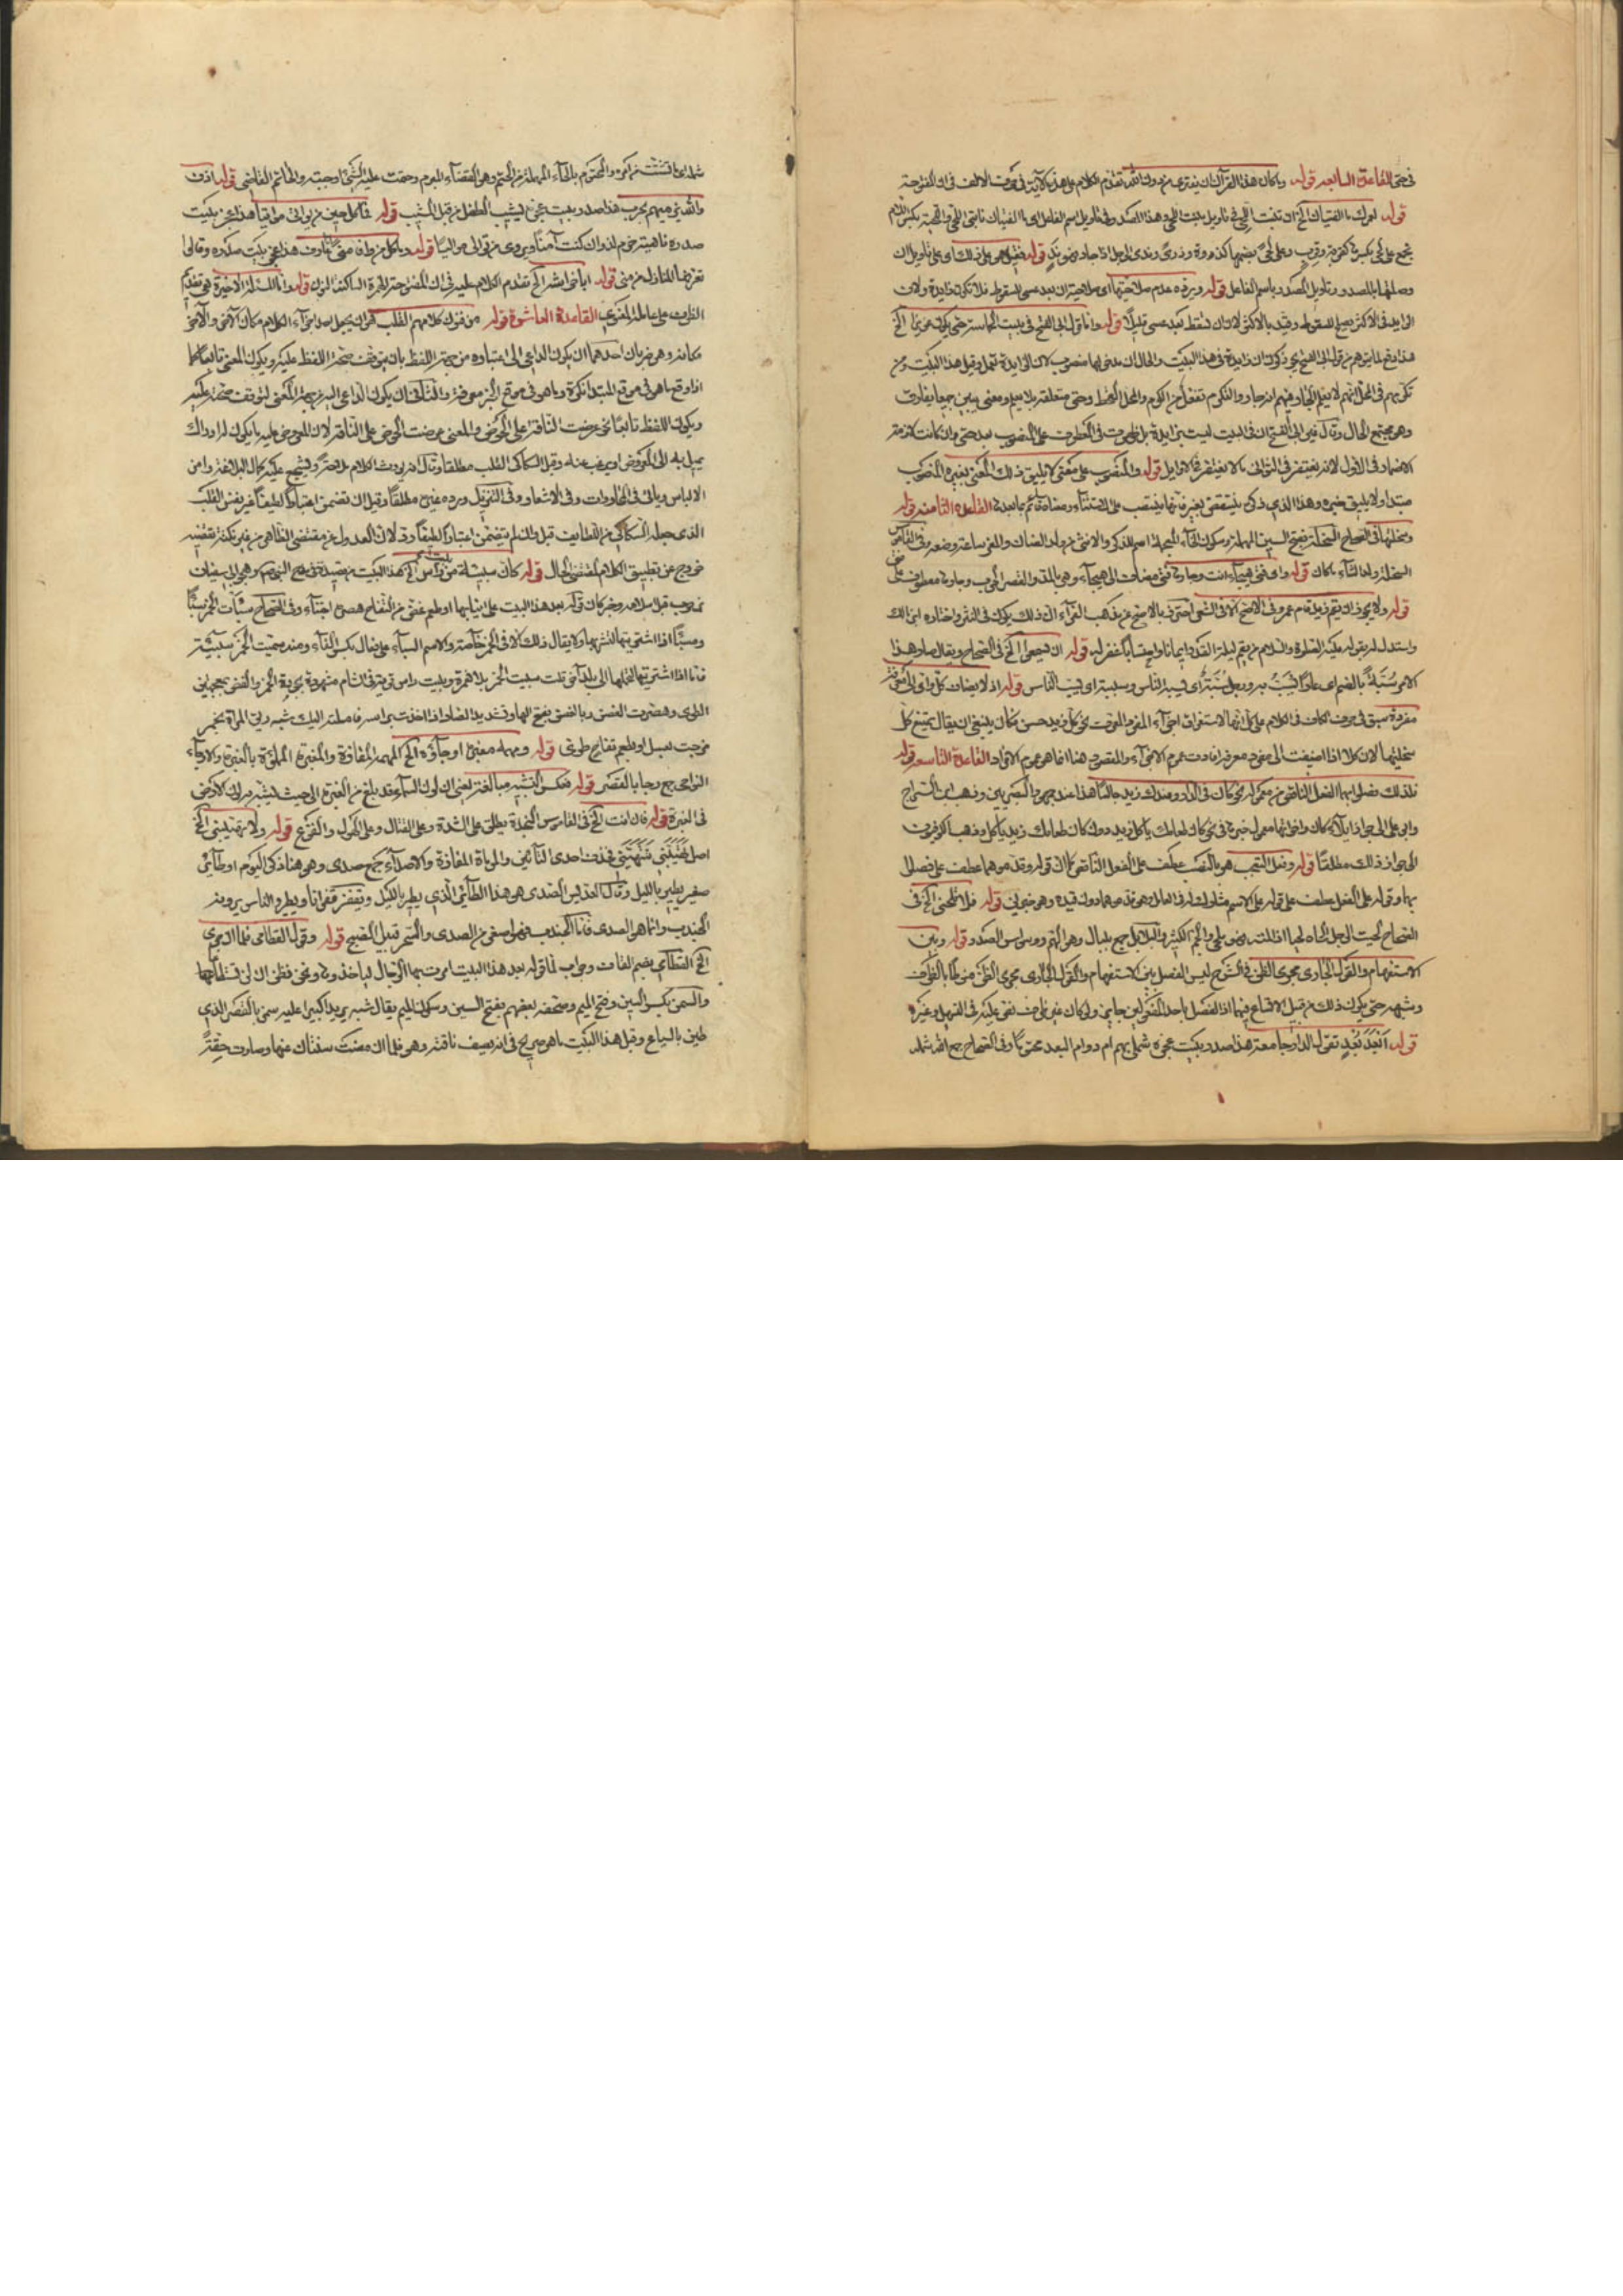 في حتى القاعدة السابعة قوله وما كان هذا القرآن ان يفترى من دون الله تقدم الكلام على هذه الآية في حرف الالف في ان المفتوحة
قوله لعمرك ما الفتيان الخ ان تنبت اللحى في تأويل نبات اللحى هذا المصدر وفي تأويل اسم الفاعل اى ما الفتيان نابتى اللحى واللحية بكسر اللام
تجمع على لحى بكسر وعلى لحى بضمها كذروة وذرى وندى الرجل اذا جاد فهو ند قوله فقيل هي على ذلك اى على تأويل ان
وصلتها بالمصدر وتأويل المصدر باسم الفاعل قوله ويرده عدم صلاحيتها اى صلاحية ان بعد عسى للسقوط فلا تكون زايدة ولان
الزايد في الاكثر يصلح للسقوط وقيد بالاكثر لان ان تسقط بعد عسى قليلا قوله واما قول ابى الفتح في بيت الحماسة حتى يكون عزيزا الخ
هذا دفع لما يتوهم من قول ابى الفتح يجوز كون ان زايدة في هذا البيت والحال ان مدخولها منصوب لان الزايدة تعمل وقبل هذا البيت ومن
تكرمهم في المحل انهم لا يعلم الجار فيهم انه جار والتكرم تفعل من الكرم والمحل القحط وحتى متعلقة بلا يعلم ومعنى يبين جميعا يفارق
وهو مجتمع الحال وقال غير ابى الفتح ان في البيت ليست بزايدة بل ظهرت في المعطوف على المنصوب بعد حتى وان كانت لازمة
الاضمار في الاول لانه يغتفر في الثوانى ما لا يغتفر في الاوايل قوله والمنصوب على معنى لا يليق ذلك المعنى بغيره المنصوب
مبتدا ولا يليق خبره وهذا الذى ذكره ينتقض بغير فانها ينتصب على الاستثناء ومضافة ثم ما بعدها القاعدة الثامنة قوله
وسخلتها في الصحاح السخلة بفتح السين المهملة وسكون الخاء المعجمة اسم للذكر والانثى من ولد الضان والمعز ساعة وضعه وفي القاموس
السخلة ولد الشاة ما كان قوله واى فتى هيجاء انت وجارها فتى مضاف الى هيجاء وهي بالمد والقصر الحرب وجارها معطوف على فتى
قوله ولا يجوز ان يقم زيد قام عمرو في الاصح الا في الشعر احترز بالاصح عن مذهب الفراء ان ذلك يكون في النثر واختاره ابن مالك
واستدل له بقوله عليه الصلوة والسلام من يقم ليلة القدر ايمانا واحتسابا غفر له قوله ان تسمعوا الخ في الصحاح ويقال صار هذا
الامر سبة بالضم اى عارا يسب به ورجل سبة اى يسبه الناس وسببة اى يسب الناس قوله اذ لا يضاف كل واى الى معرفة
مفردة سبق في حرف الكاف في الكلام على كل انها لاستغراق اجزاء المفرد المعرف نحو كل زيد حسن فكان ينبغى ان يقال يمتنع كل
سخلتها لان كلا اذا اضيفت الى مفرد معرفة افادت عموم الاجزاء والمقصود هنا انما هو عموم الافراد القاعدة التاسعة قوله
فلذلك فصلوا بهما الفعل الناقص من معموله نحو كان في الدار وعندك زيد جالسا هذا عند جمهور البصريين وذهب ابن السراج
وابو على الى جواز ايلاء كان واخواتها معمول خبرها في نحو كان طعامك ياكل زيد دون كان طعامك زيد ياكل وذهب الكوفيون
الى جواز ذلك مطلقا قوله وفعل التعجب هو بالنصب عطف على الفعل الناقص كما ان قوله وقدموهما عطف على فصلوا
بهما وقوله على الفعل عطف على قوله على الاسم وقدموهما دون قيده وهو خبرين قوله فلا تلحنى الخ في
الصحاح لحيت الرجل الحاه لحيا اذا لمته فهو ملحى والجم الكثير والبلابل جمع بلبال وهو الهم ووسواس الصدر قوله وبين
الاستفهام والقول الجارى مجرى الظن في الشرح ليس الفصل بين الاستفهام والقول الجارى مجرى الظن مشروطا بالظرف
وشبهه حتى يكون ذلك من قبيل الاتساع فيهما اذ الفصل باحد المفعولين جايز ولو كان غير ظرف نص عليه في التسهيل وغيره
قوله ابعد بعد تقول الدار جامعة هذا صدر بيت عجزه شملى بهم ام دوام البعد محتوما وفي الصحاح جمع الله شمله
شملهم اى ما تشتت من امره والمحتوم بالحاء المهملة من الحتم وهو القضاء المبرم وحتمت عليه الشئ اوجبته والحاتم القاضى قوله اذن
والله نرميهم بحرب هذا صدر وبيت عجزه تشيب الطفل من قبل المشيب قوله فما كل حين من توالى مواليا هذا عجز بيت
صدره باهبة حزم لذ وان كنت آمنا ويروى من تولى مواليا قوله وما كل من وافى منى انا عارف هذا عجز بيت صدره وقالوا
تعرفها المنازل من منى قوله ابا خراشة الخ تقدم الكلام عليه في ان المفتوحة الهمزة الساكنة النون قوله واما المسئلة الاخيرة فهي تقدم
الظرف على عامله المعنوى القاعدة العاشرة قوله من فنون كلامهم القلب هو ان يجعل احد اجزاء الكلام مكان الآخر والآخر
مكانه وهو ضربان احدهما ان يكون الداعى الى اعتباره من جهة اللفظ بان يتوقف صحة اللفظ عليه ويكون المعنى تابعا كما
اذا وقع ما هو في موقع المبتدا نكرة وما هو في موقع الخبر معرفة والثانى ان يكون الداعى اليه من جهة المعنى لتوقف صحته عليه
ويكون اللفظ تابعا نحو عرضت الناقة على الحوض والمعنى عرضت الحوض على الناقة لان المعروض عليه ما يكون له ادراك
يميل به الى المعروض او يرغب عنه وقبل السكاكى القلب مطلقا وقال انه يورث الكلام ملاحة ويشجع عليه كمال البلاغة وامن
الالباس وياتى في المحاورات وفي الاشعار وفي التنزيل ورده غيره مطلقا وقيل ان تضمن اعتبارا لطيفا غير نفس القلب
الذى جعله السكاكى من اللطايف قبل وان لم يتضمن اعتبارا لطيفا رد لان العدول عن مقتضى الظاهر من غير نكتة تقتضيه
خروج عن تطبيق الكلام لمقتضى الحال قوله كان سبيئة من بيت راس الخ هذا البيت من قصيدة في مدح النبي صم وهجو ابى سفيان
بن حرب قبل اسلامه وخبر كان قوله بعد هذا البيت على انيابها او طعم غض من التفاح هصره اجتناء وفي الصحاح سبأت الخمر سبأ
ومسبأ اذا اشتريتها لتشربها ولا يقال ذلك الا في الخمر خاصة والاسم السباء على فعال بكسر الفاء ومنه سميت الخمر سبيئة
فاما اذا اشتريتها لتحملها الى بلد آخر قلت سبيت الخمر بلا همزة وبيت راس قرية في الشام مشهورة بجودة الخمر والغض
الطرى وهصرت الغصن وبالغصن بفتح الهاء وتشديد الصاد اذا اخذت براسه فاملته اليك شبه ريق المراة بخمر
مزجت بعسل او بطعم تفاح طرى قوله ومهمه مغبرة ارجاؤه الخ المهمه المفازة والمغبرة المملوءة بالغبرة والارجاء
النواحى جمع رجا بالقصر قوله فعكس التشبيه مبالغة يعنى ان لون السماء قد بلغ من الغبرة الى حيث يشبه به لون الارض
في الغبرة قوله فان انت الخ في القاموس النجدة يطلق على الشدة وعلى القتال وعلى الهول والفزع قوله ولا تهيبنى الخ
اصل تهيبنى تتهيبنى فحذفت احدى التائين والموماة المفازة والاصداء جمع صدى وهو هنا ذكر البوم او طائر
صغير يطير بالليل وقال العدبس الصدى هو هذا الطائر الذى يطير بالليل ويقفز قفزانا ويطير والناس يرونه
الجندب وانما هو الصدى فاما الجندب فهو اصغر من الصدى والسحر قبيل الصبح قوله وقول القطامى فلما ان جرى
الخ القطامى بضم القاف وجواب لما قوله بعد هذا البيت امرت بها الرجال لياخذوها ونحن نظن ان لن تستطاعا
والسمن بكسر السين وفتح الميم وصحفه بعضهم بفتح السين وسكون الميم يقال شبه يريد كبيرا عليه سمن بالقصر الذى
طين بالسياع وقبل هذا البيت ما هو صريح في انه يصف ناقته وهو فلما ان مضت سنتان عنها وصارت حقة